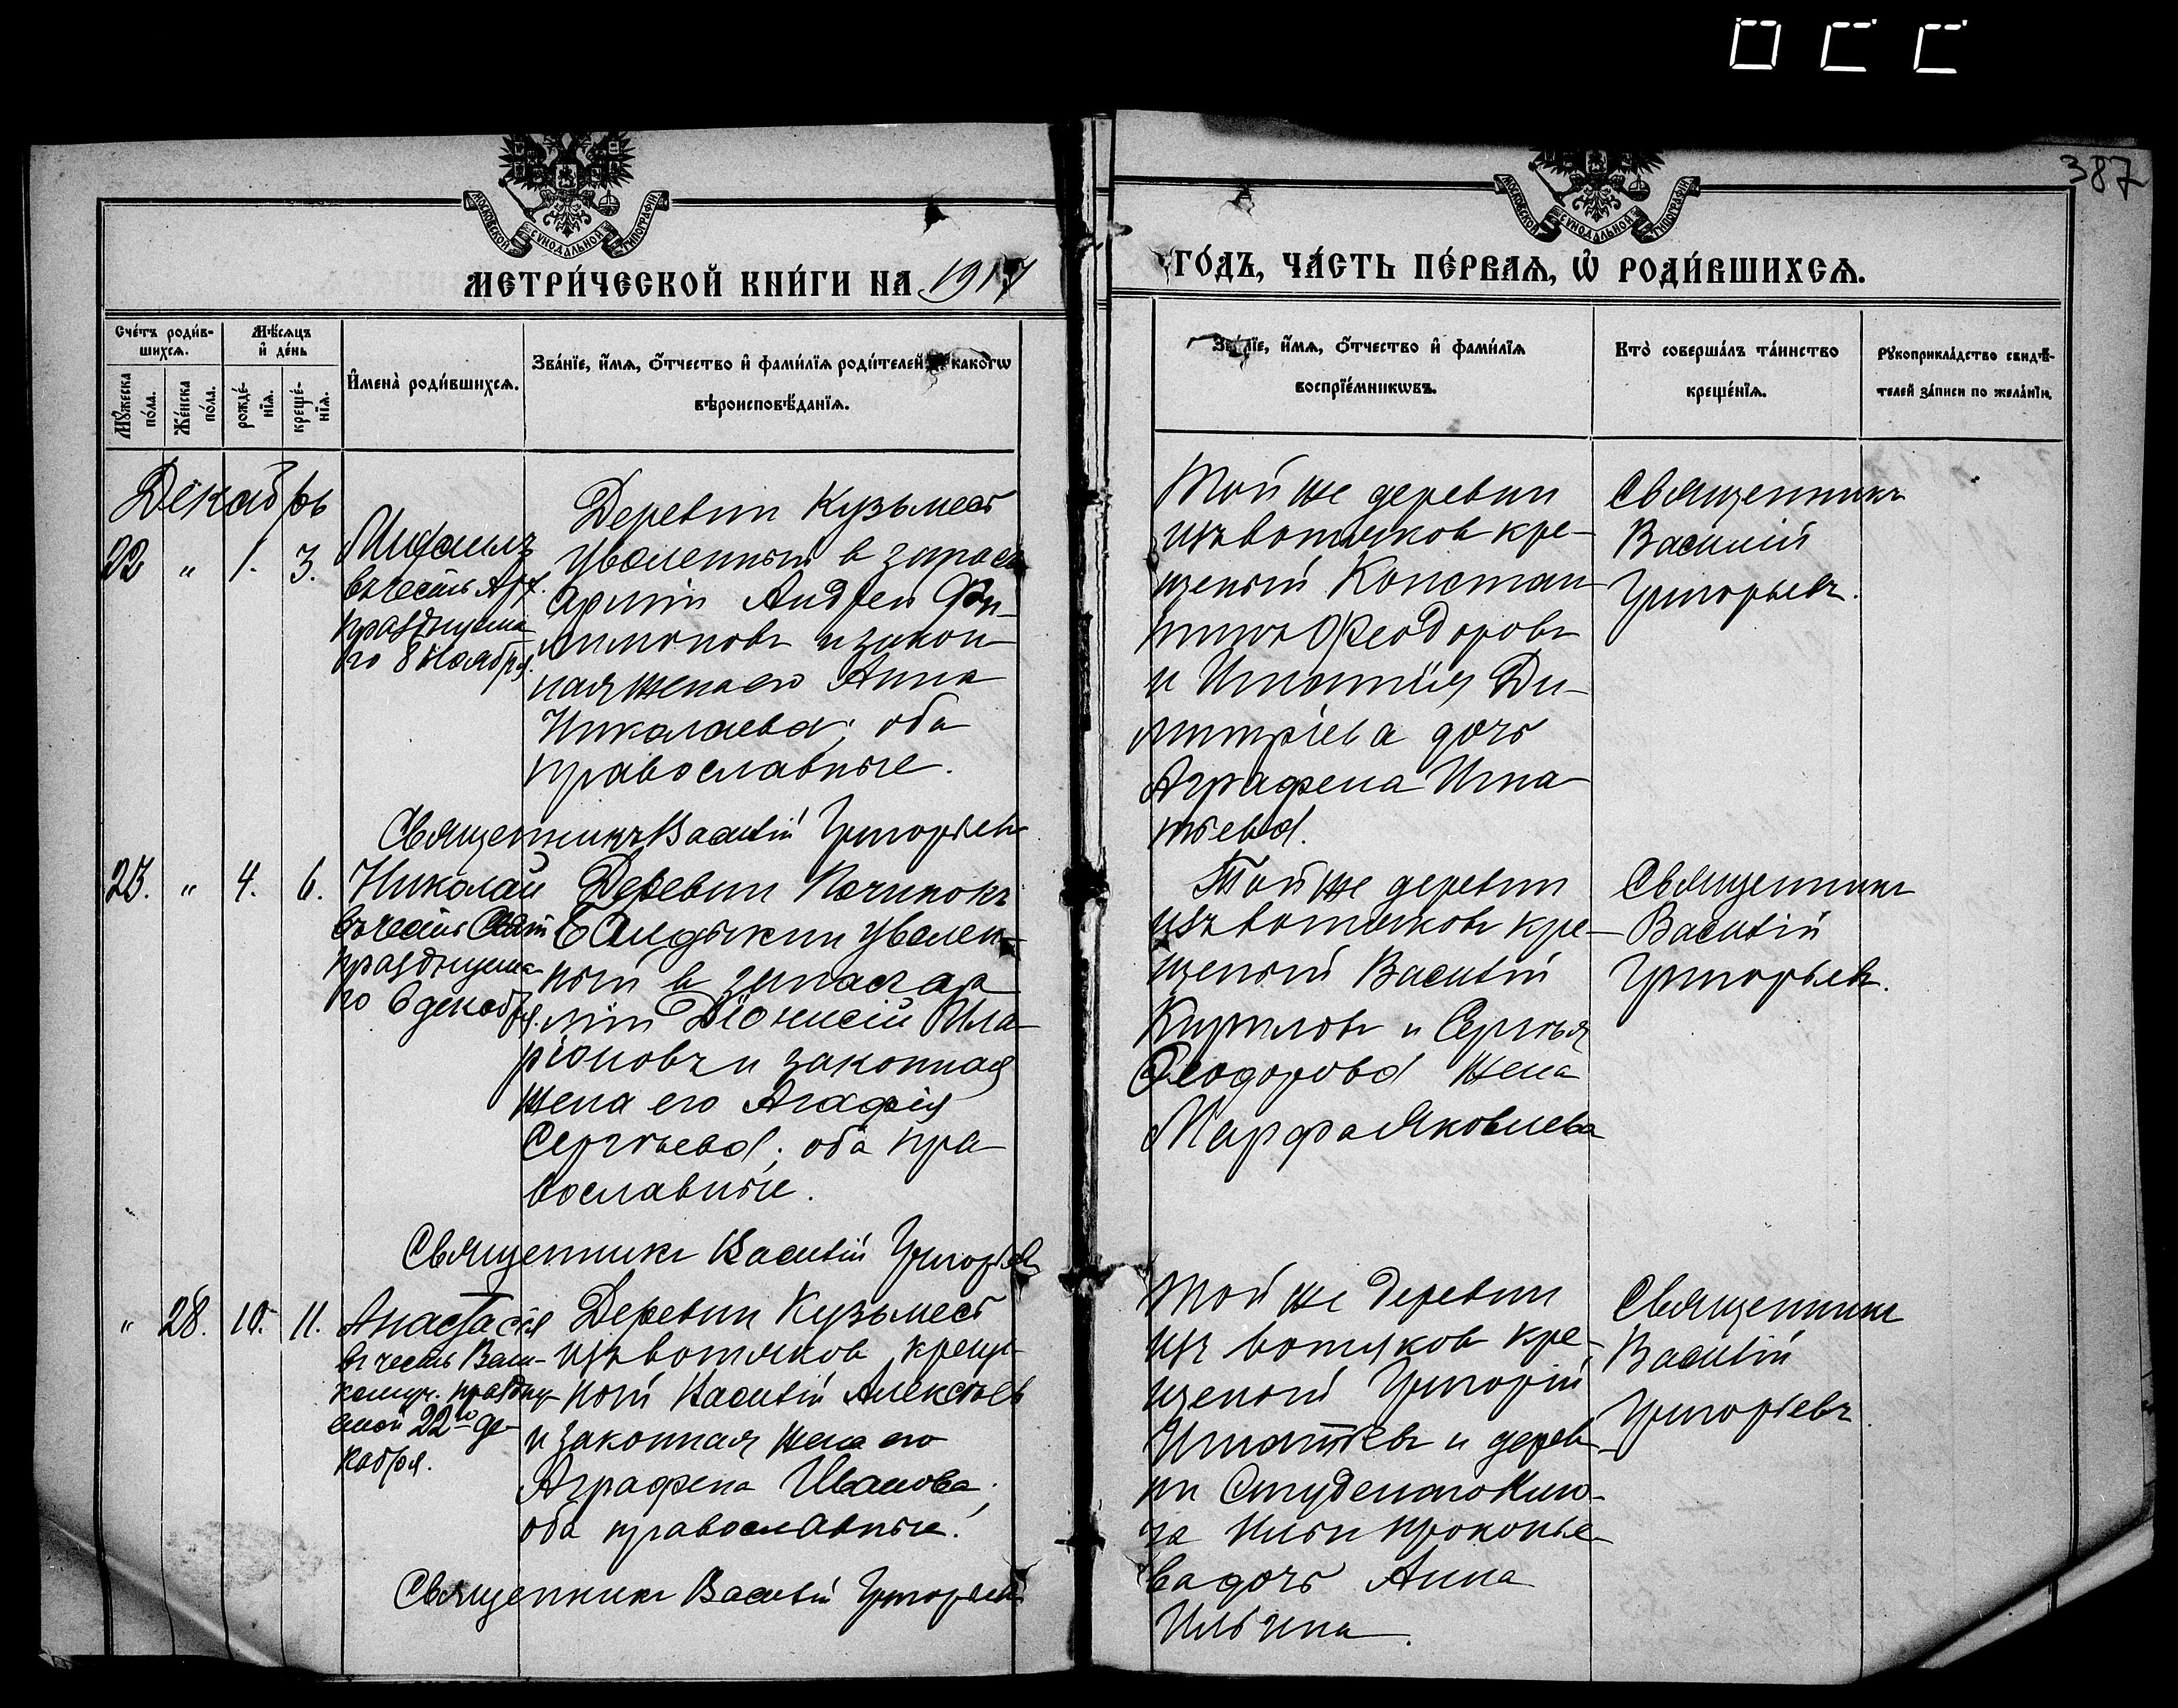 387
МОСКОВСКОЙ СѴНОДАЛЬНОЙ ТИПОГРАФІИ
МОСКОВСКОЙ СѴНОДАЛЬНОЙ ТИПОГРАФІИ
МЕТРИ́ЧЕСКОЙ КНИ́ГИ НА 1917
ГО́ДЪ, ЧА́СТЬ ПЕ́РВАѦ, Ѡ҆ РОДИ́ВШИХСѦ.
Сче́тъ роди́в-
шихсѧ.
Мѣ́сѧцъ
и҆ де́нь
Мꙋ́жеска
по́ла.
Же́нска
по́ла.
рожде́-
нїѧ.
креще́-
нїѧ.
И҆мена̀ роди́вшихсѧ.
Зва́нїе, и҆́мѧ, ѻ҆́тчество и҆ фами́лїѧ роди́телей, како́гѡ
вѣроисповѣ́данїѧ.
и҆́мѧ, ѻ҆́тчество и҆ фами́лїѧ
воспрїе́мникѡвъ.
Кто̀ соверша́лъ та́инство
креще́нїѧ.
рꙋкоприкла́дство свидѣ́-
телей за́писи по жела́нїю.
Декабрь
22 " 1. 3.
Михаилъ
въ честь Арх.
празднуема
го 8 Ноября.
Деревни Кузьмест
уволенный в запас
армiи Андрей Фи-
лимоновъ и закон
ная жена его Анна
Николаева; оба
православные.
Священникъ Василiй Григорьевъ
Той же деревни
изъ вотяков кре-
щеный Констан
тинъ Феодоровъ
и Игнатiя Ди-
митрiева дочь
Аграфена Игна
тьева.
Священникъ
Василiй
Григорьевъ.
23. " 4. 6.
Николай
въ честь Свят
празднуема-
го 6 декабря.
Деревни Починокъ
уволен-
ный в запас ар
мiи Дiонисiй Ила
рiоновъ и законная
жена его Агафiя
Сергѣева; оба пра
вославные.
Священникъ Василiй Григорьев
Той же деревни
изъ вотяковъ кре-
щеный Василiй
Кириловъ и Сергѣя
Феодорова жена
Марфа Яковлева
Священникъ
Василiй
Григорьевъ.
" 28. 10. 11.
Анастасiя
въ честь Вели-
комуч. праздну
емой 22го де-
кабря.
Деревни Кузьмест
изъ вотяков креще
ный Василiй Алексѣев
и законная жена его
Аграфена Иванова;
оба православные.
Священникъ Василiй Григорьевъ
Той же деревни
изъ вотяков кре-
щеный Григорiй
Игнатьевъ и дерев
ни Студеного Клю-
ча Ильи Прокопье
ва дочь Анна
Ильина.
Священникъ
Василiй
Григорьевъ